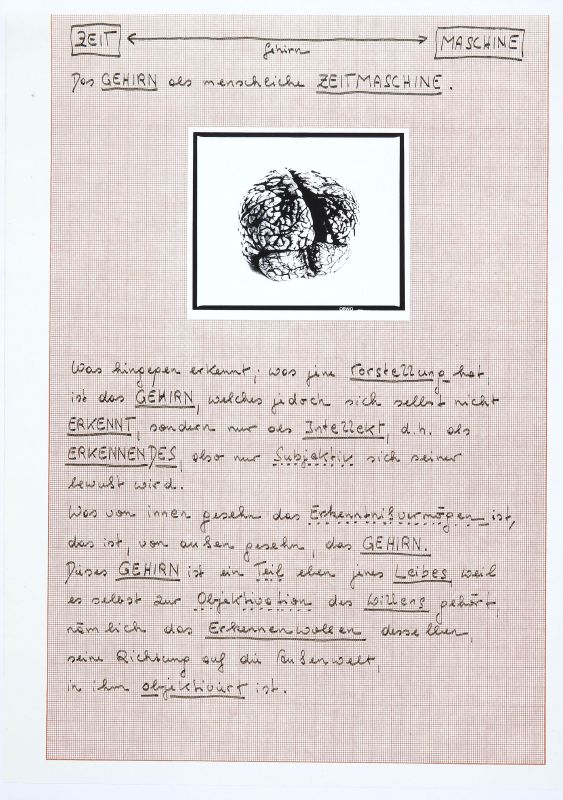 ZEIT MASCHINE
Gehirn
Das GEHIRN als menschliche ZEITMASCHINE.
ORWO
Was hingegen erkennt, was jene Vorstellung hat,
ist das GEHIRN, welches jedoch sich selbst nicht
ERKENNT, sondern nur als Intellekt, d.h. als
ERKENNENDES, also nur Subjektiv sich seiner
bewußt wird.
Was von innen gesehn das Erkenntnißvermögen ist,
das ist, von außen gesehn, das GEHIRN.
Dieses GEHIRN ist ein Teil eben jenes Leibes weil
es selbst zur Objektivation des Willens gehört,
nämlich das Erkennenwollen desselben,
seine Richtung auf die Außenwelt,
in ihm objektiviert ist.